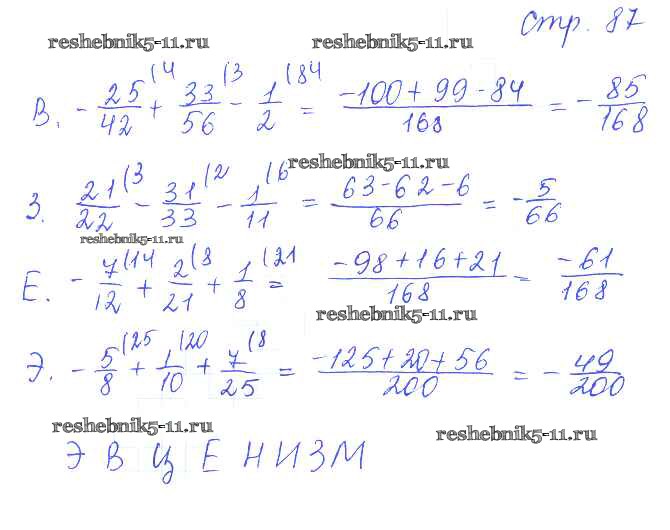 Стр. 87
reshebnik5-11.ru reshebnik5-11.ru
В. -25/42 (4 + 33/56 (3 - 1/2 (84 = (-100 + 99 - 84)/168 = -85/168
reshebnik5-11.ru
З. 21/22 (3 - 31/33 (2 - 1/11 (6 = (63 - 62 - 6)/66 = -5/66
reshebnik5-11.ru
Е. -7/12 (14 + 2/21 (8 + 1/8 (21 = (-98 + 16 + 21)/168 = -61/168
reshebnik5-11.ru
Э. -5/8 (25 + 1/10 (20 + 7/25 (8 = (-125 + 20 + 56)/200 = -49/200
reshebnik5-11.ru reshebnik5-11.ru
Э В Ц Е Н И З М